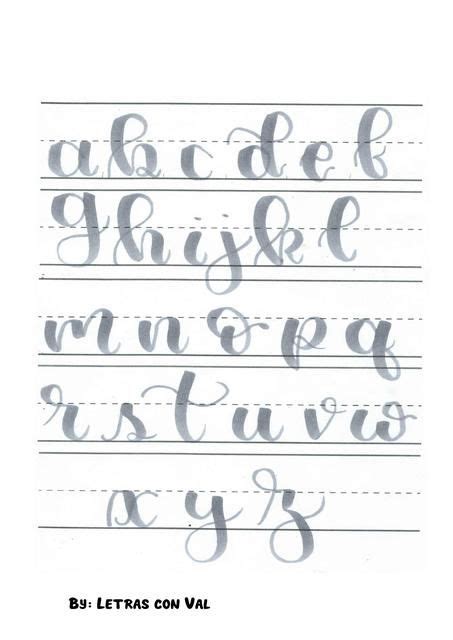 a b c d e f
g h i j k l
m n o p q
r s t u v w
x y z
By: Letras con Val